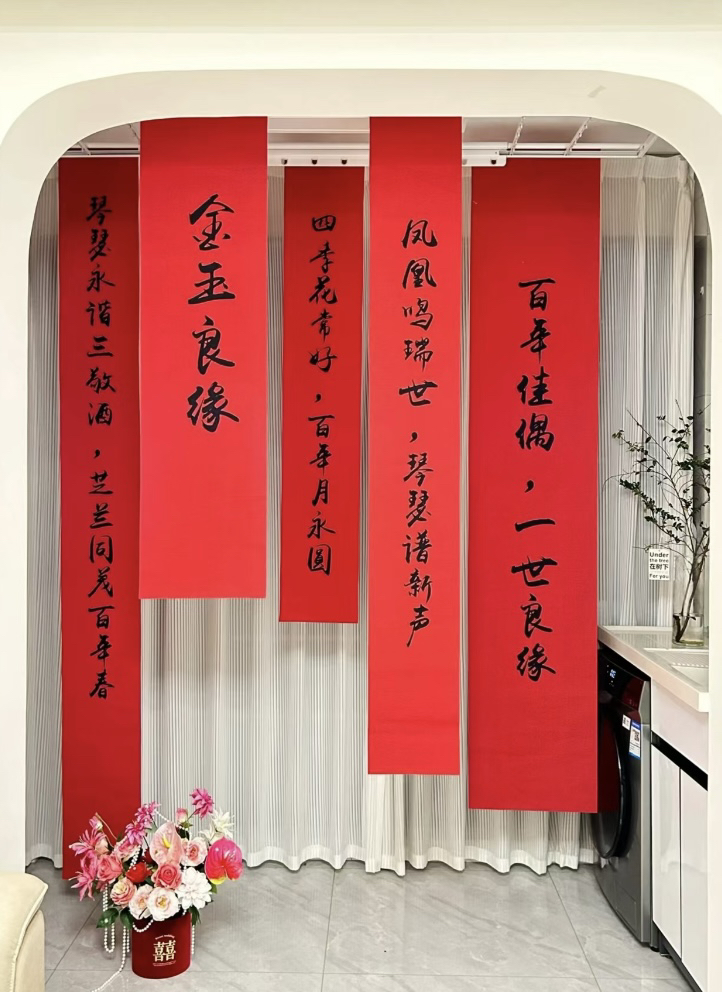 琴瑟永谐三敬酒，芝兰同茂百年春
金玉良缘
四季花常好，百年月永圆
凤凰鸣瑞世，琴瑟谱新声
百年佳偶，一世良缘
Under
the tree
在树下
For you
囍